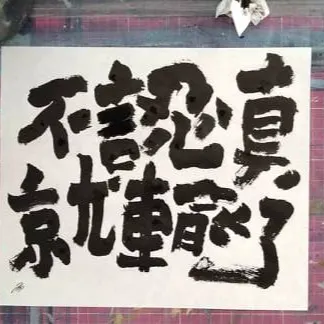 不認真
就輸了